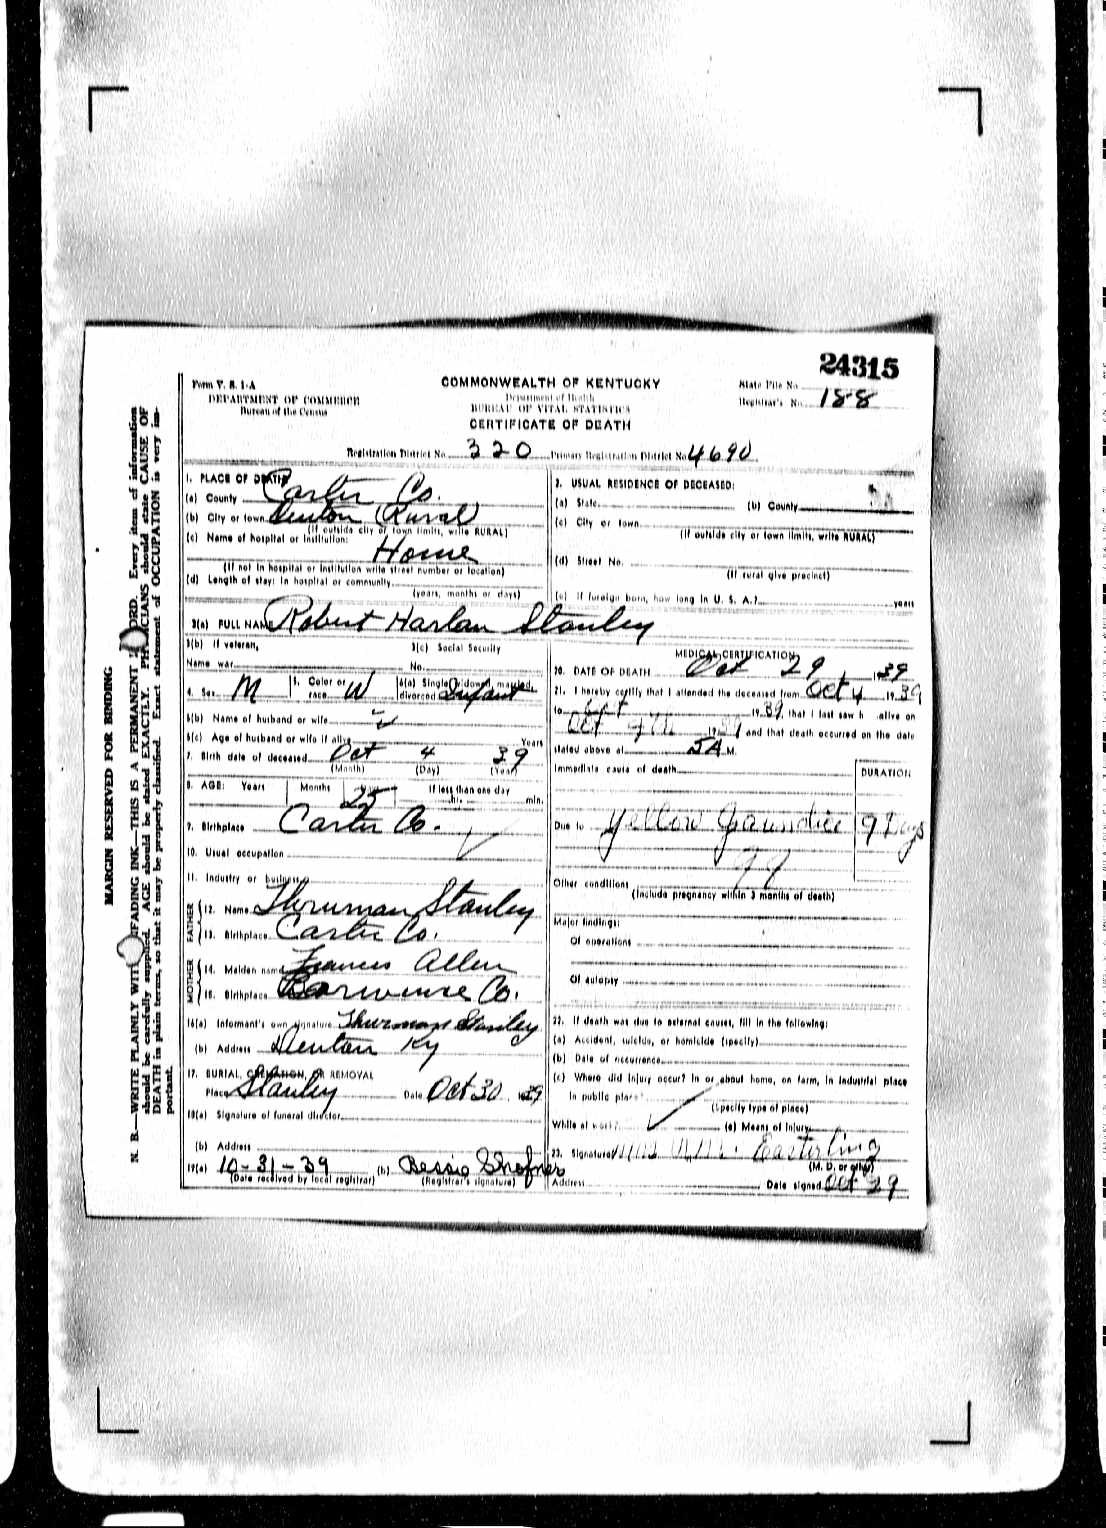 24315
Form V. S. 1-A
COMMONWEALTH OF KENTUCKY
State File No.
DEPARTMENT OF COMMERCE
Department of Health
Registrar's No. 188
Bureau of the Census
BUREAU OF VITAL STATISTICS
CERTIFICATE OF DEATH
Registration District No. 320 Primary Registration District No. 4690
MARGIN RESERVED FOR BINDING
N. B.—WRITE PLAINLY WITH UNFADING INK—THIS IS A PERMANENT RECORD. Every item of information
should be carefully supplied. AGE should be stated EXACTLY. PHYSICIANS should state CAUSE OF
DEATH in plain terms, so that it may be properly classified. Exact statement of OCCUPATION is very im-
portant.
1. PLACE OF DEATH
(a) County Carter Co.
(b) City or town Denton (Rural)
(If outside city or town limits, write RURAL)
(c) Name of hospital or institution:
Home
(If not in hospital or institution write street number or location)
(d) Length of stay: In hospital or community
(years, months or days)
2. USUAL RESIDENCE OF DECEASED:
(a) State (b) County
(c) City or town
(If outside city or town limits, write RURAL)
(d) Street No.
(If rural give precinct)
(e) If foreign born, how long in U. S. A.? years
3(a) FULL NAME Robert Harlan Stanley
3(b) If veteran, 3(c) Social Security
Name war No.
4. Sex M 5. Color or race W 6(a) Single, widowed, married, divorced Infant
6(b) Name of husband or wife
6(c) Age of husband or wife if alive Years
7. Birth date of deceased Oct 4 39
(Month) (Day) (Year)
8. AGE: Years Months 25 If less than one day
hr. min.
9. Birthplace Carter Co.
10. Usual occupation
11. Industry or business
FATHER
12. Name Thruman Stanley
13. Birthplace Carter Co.
MOTHER
14. Maiden name Frances Allen
15. Birthplace
16(a) Informant's own signature Thurman Stanley
(b) Address Denton Ky
17. BURIAL, CREMATION, OR REMOVAL
Place Stanley Date Oct 30, 1939
18(a) Signature of funeral director
(b) Address
19(a) 10-31-39 (b) Bessie
(Date received by local registrar) (Registrar's signature)
MEDICAL CERTIFICATION
20. DATE OF DEATH Oct 29, 1939
21. I hereby certify that I attended the deceased from Oct 4 1939
to Oct 1939, that I last saw h alive on
Oct 1939 and that death occurred on the date
stated above at 5 A M.
Immediate cause of death
DURATION
Due to Yellow Jaundice 9 Days
Other conditions
(Include pregnancy within 3 months of death)
Major findings:
Of operations
Of autopsy
22. If death was due to external causes, fill in the following:
(a) Accident, suicide, or homicide (specify)
(b) Date of occurrence
(c) Where did injury occur? In or about home, on farm, in industrial place
in public place?
(Specify type of place)
While at work? (e) Means of Injury
23. Signature Easterling
(M. D. or other)
Address Date signed Oct 29